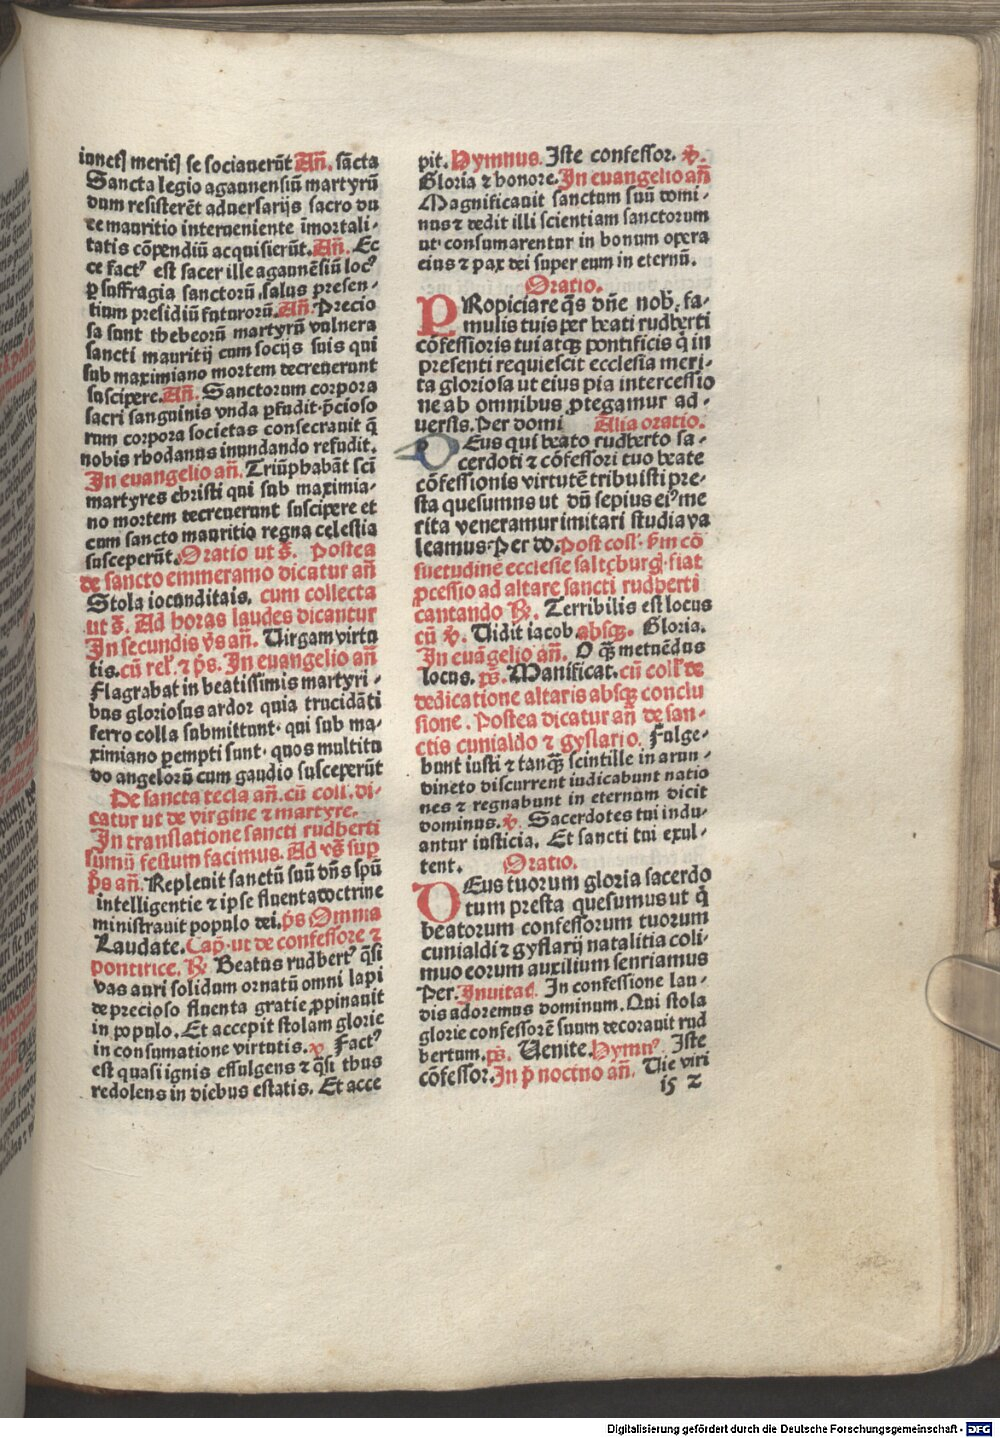 iunctꝭ meritꝭ se sociauerūt Añ. sācta
Sancta legio agaunensiū martyrū
dum resisterēt aduersarijs sacro du
ce mauritio interueniente īmortali-
tatis cōpendiū acquisierūt. Añ. Ec
ce factꝰ est sacer ille agaunēsiū locꝰ
ꝑ suffragia sanctorū, salus presen-
tium presidiū futurorū. Añ. Precio
sa sunt thebeorū martyrū vulnera
sancti mauritij cum socijs suis qui
sub maximiano mortem decreuerunt
suscipere. Añ. Sanctorum corpora
sacri sanguinis vnda ꝑfudit. p̄cioso
rum corpora societas consecrauit q̄
nobis rhodanus inundando refudit.
In euangelio añ. Triūphabāt sc̄i
martyres christi qui sub maximia-
no mortem decreuerunt suscipere et
cum sancto mauritio regna celestia
susceperūt. Oratio ut s̄. Postea
de sancto emmeramo dicatur añ
Stola iocunditais. cum collecta
ut s̄. Ad horas laudes dicantur
In secundis v̄s añ. Uirgam virtu
tis. cū rel̕. ⁊ p̄s. In euangelio añ
Flagrabat in beatissimis martyri-
bus gloriosus ardor quia trucidāti
ferro colla submittunt. qui sub ma-
ximiano ꝑempti sunt. quos multitu
do angelorū cum gaudio susceperūt
De sancta tecla añ. cū coll. di-
catur ut de virgine ⁊ martyre.
In translatione sancti rudberti
sumū festum facimus. Ad vs̄ sup̄
p̄s añ. Repleuit sanctū suū dn̄s spū
intelligentie ⁊ ipse fluenta doctrine
ministrauit populo dei. p̄s Omnia
Laudate. Cap̄. ut de confessore ⁊
pontifice. ℟. Beatus rudbertꝰ q̄si
vas auri solidum ornatū omni lapi
de precioso fluenta gratie ꝓpinauit
in populo. Et accepit stolam glorie
in consumatione virtutis. ℣ Factꝰ
est quasi ignis effulgens ⁊ q̄si thus
redolens in diebus estatis. Et acce
pit. Hymnus. Iste confessor. ℣.
Gloria ⁊ honore. In euangelio añ
Magnificauit sanctum suū domi-
nus ⁊ dedit illi scientiam sanctorum
ut consumarentur in bonum opera
eius ⁊ pax dei super eum in eternū.
Oratio.
PRopiciare q̄s dn̄e nob̕. fa-
mulis tuis per beati rudberti
cōfessioris tui atqꝫ pontificis q̄ in
presenti requiescit ecclesia meri-
ta gloriosa ut eius pia intercessio
ne ab omnibus ꝓtegamur ad-
uersis. Per domi Alia oratio.
DEus qui beato rudberto sa-
cerdoti ⁊ cōfessori tuo beate
cōfessionis virtutē tribuisti pre-
sta quesumus ut dū sepius eiꝰ me
rita veneramur imitari studia va
leamus. Per do. Post coll. v̄m cō
suetudinē ecclesie saltzburḡ. fiat
ꝓcessio ad altare sancti rudberti
cantando ℟. Terribilis est locus
cū ℣. Uidit iacob. absqꝫ. Gloria.
In euāgelio añ. O q̄ꝫ metuēdus
locus. p̄s. Manificat. cū coll̕ de
dedicatione altaris absqꝫ conclu
sione. Postea dicatur añ de san-
ctis cunialdo ⁊ gyslario. Fulge-
bunt iusti ⁊ tanq̄ꝫ scintille in arun-
dineto discurrent iudicabunt natio
nes ⁊ regnabunt in eternum dicit
dominus. ℣. Sacerdotes tui indu-
antur iusticia. Et sancti tui exul-
tent. Oratio.
DEus tuorum gloria sacerdo
tum presta quesumus ut q̄
beatorum confessorum tuorum
cunialdi ⁊ gyslarij natalitia coli-
muo eorum auxilium senriamus
Per. Inuitac̄. In confessione lau-
dis adoremus dominum. Qui stola
glorie confessorē suum decorauit rud
bertum. p̄s. Uenite. Hymnꝰ. Iste
cōfessor. In p̄ noctno añ. Uie viri
is 2
Digitalisierung gefördert durch die Deutsche Forschungsgemeinschaft - DFG